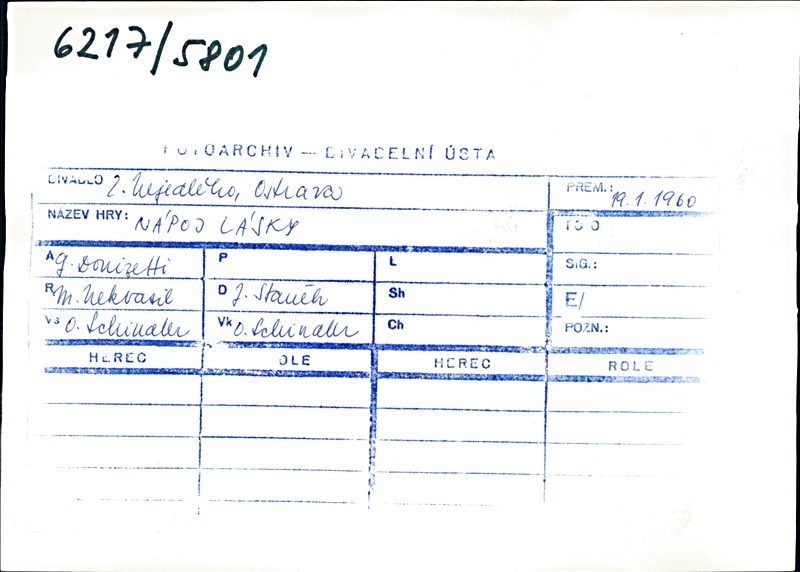 6217/5801
FOTOARCHIV — DIVADELNÍ ÚSTA
DIVADLO Z. Nejedlého, Ostrava
PREM.: 19.1.1960
NÁZEV HRY: NÁPOJ LÁSKY
FOTO
A G. Donizetti P L
SIG.:
R M. Nekvasil D J. Staněk Sh
E/
Vs O. Schindler Vk O. Schindler Ch
POZN.:
HEREC OLE HEREC ROLE